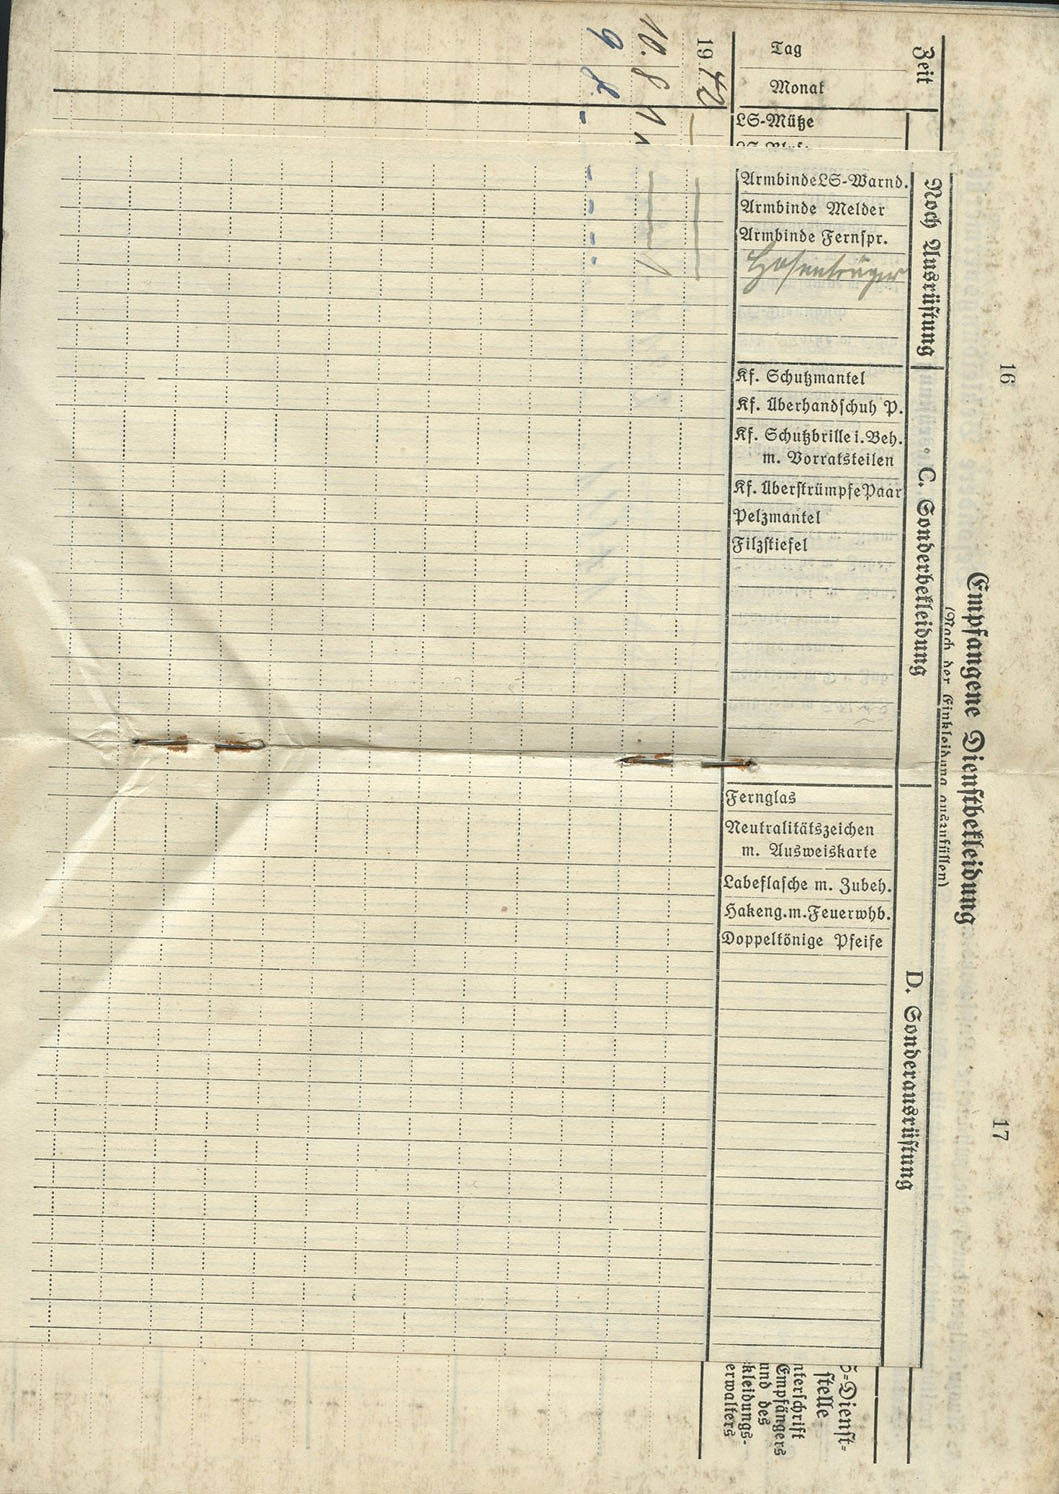 16
17
Empfangene Dienstbekleidung
(Nach der Einkleidung auszufüllen)
Zeit
Tag
Monat
1942
10. 8
9 8.
LS-Mütze
Noch Ausrüstung
Armbinde LS-Warnd.
Armbinde Melder
Armbinde Fernspr.
Hosenträger
C. Sonderbekleidung
Kf. Schutzmantel
Kf. Überhandschuh P.
Kf. Schutzbrille i. Beh.
m. Vorratsteilen
Kf. Überstrümpfe Paar
Pelzmantel
Filzstiefel
D. Sonderausrüstung
Fernglas
Neutralitätszeichen
m. Ausweiskarte
Labeflasche m. Zubeh.
Hakeng. m. Feuerwhb.
Doppeltönige Pfeife
-Dienst-
stelle
nterschrift
Empfängers
und des
kleidungs-
erwalters